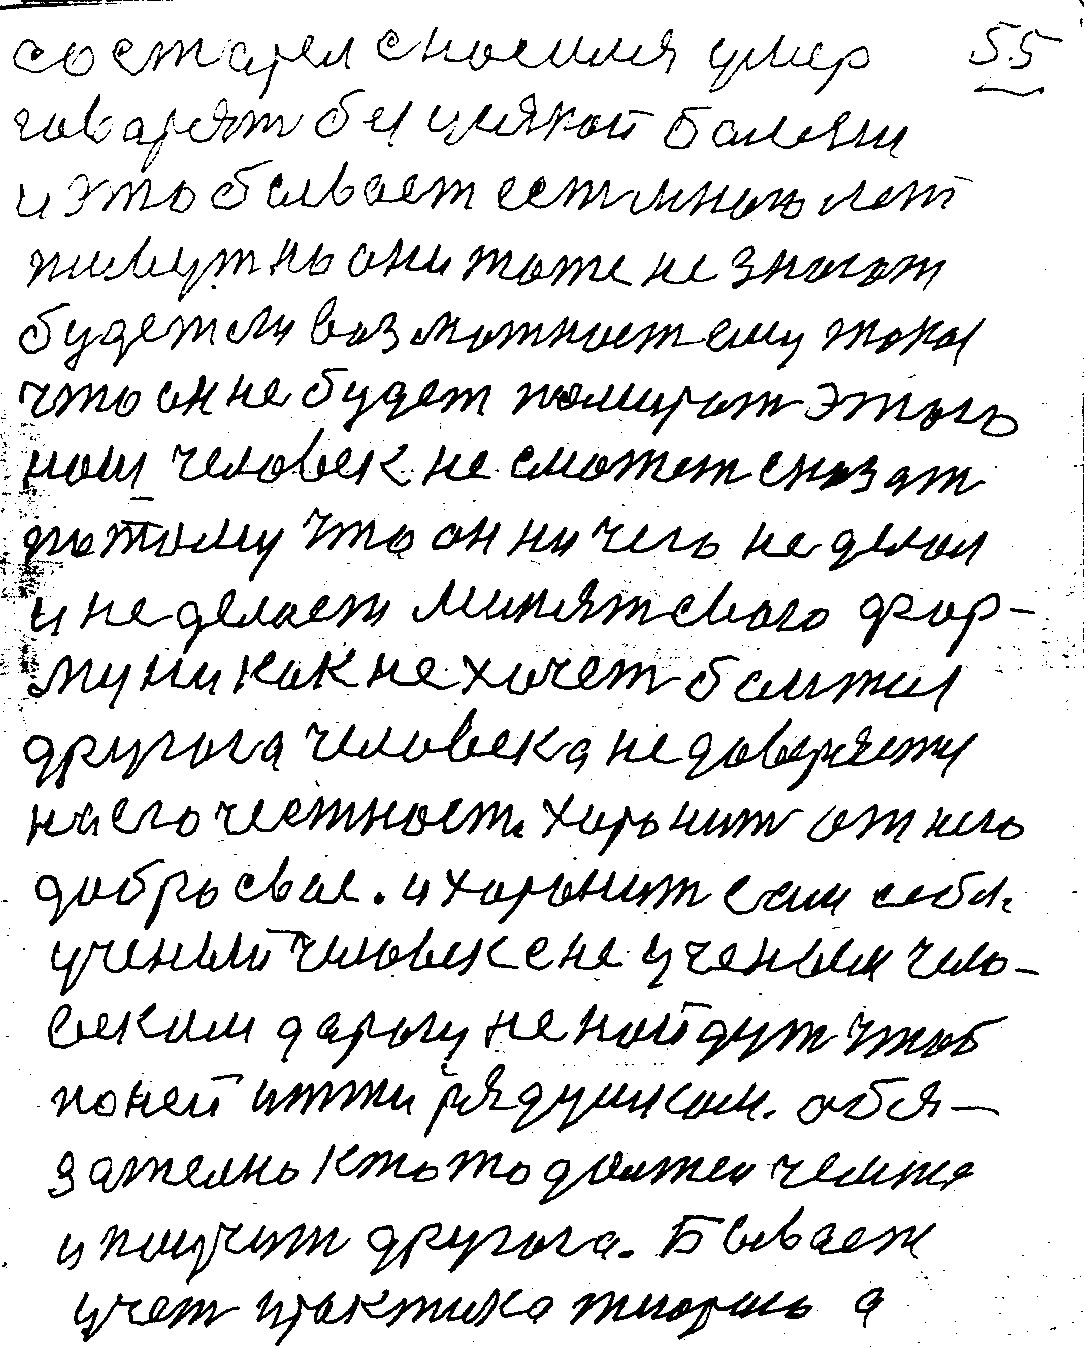 состарел скосился умер 55
говарят без усякой болезни
и это бывает ест много лет
живут но они тоже не знают
будет ли возможност ему така
что он не будет помират этого
наш человек не сможет сказат
потому что он ничего не делал
и не делает минят свого фор-
му никак не хочет болжил
другога человека не доверяет
на его честност. хоронит от него
добро свае. и хоронит сам себя.
ученый человек с не ученым чело-
веким дарогу не найдут чтоб
по ней итти рядушком. обя-
зателно кто то должен чемта
и научит другога. Бывает
учет практика тиорию а